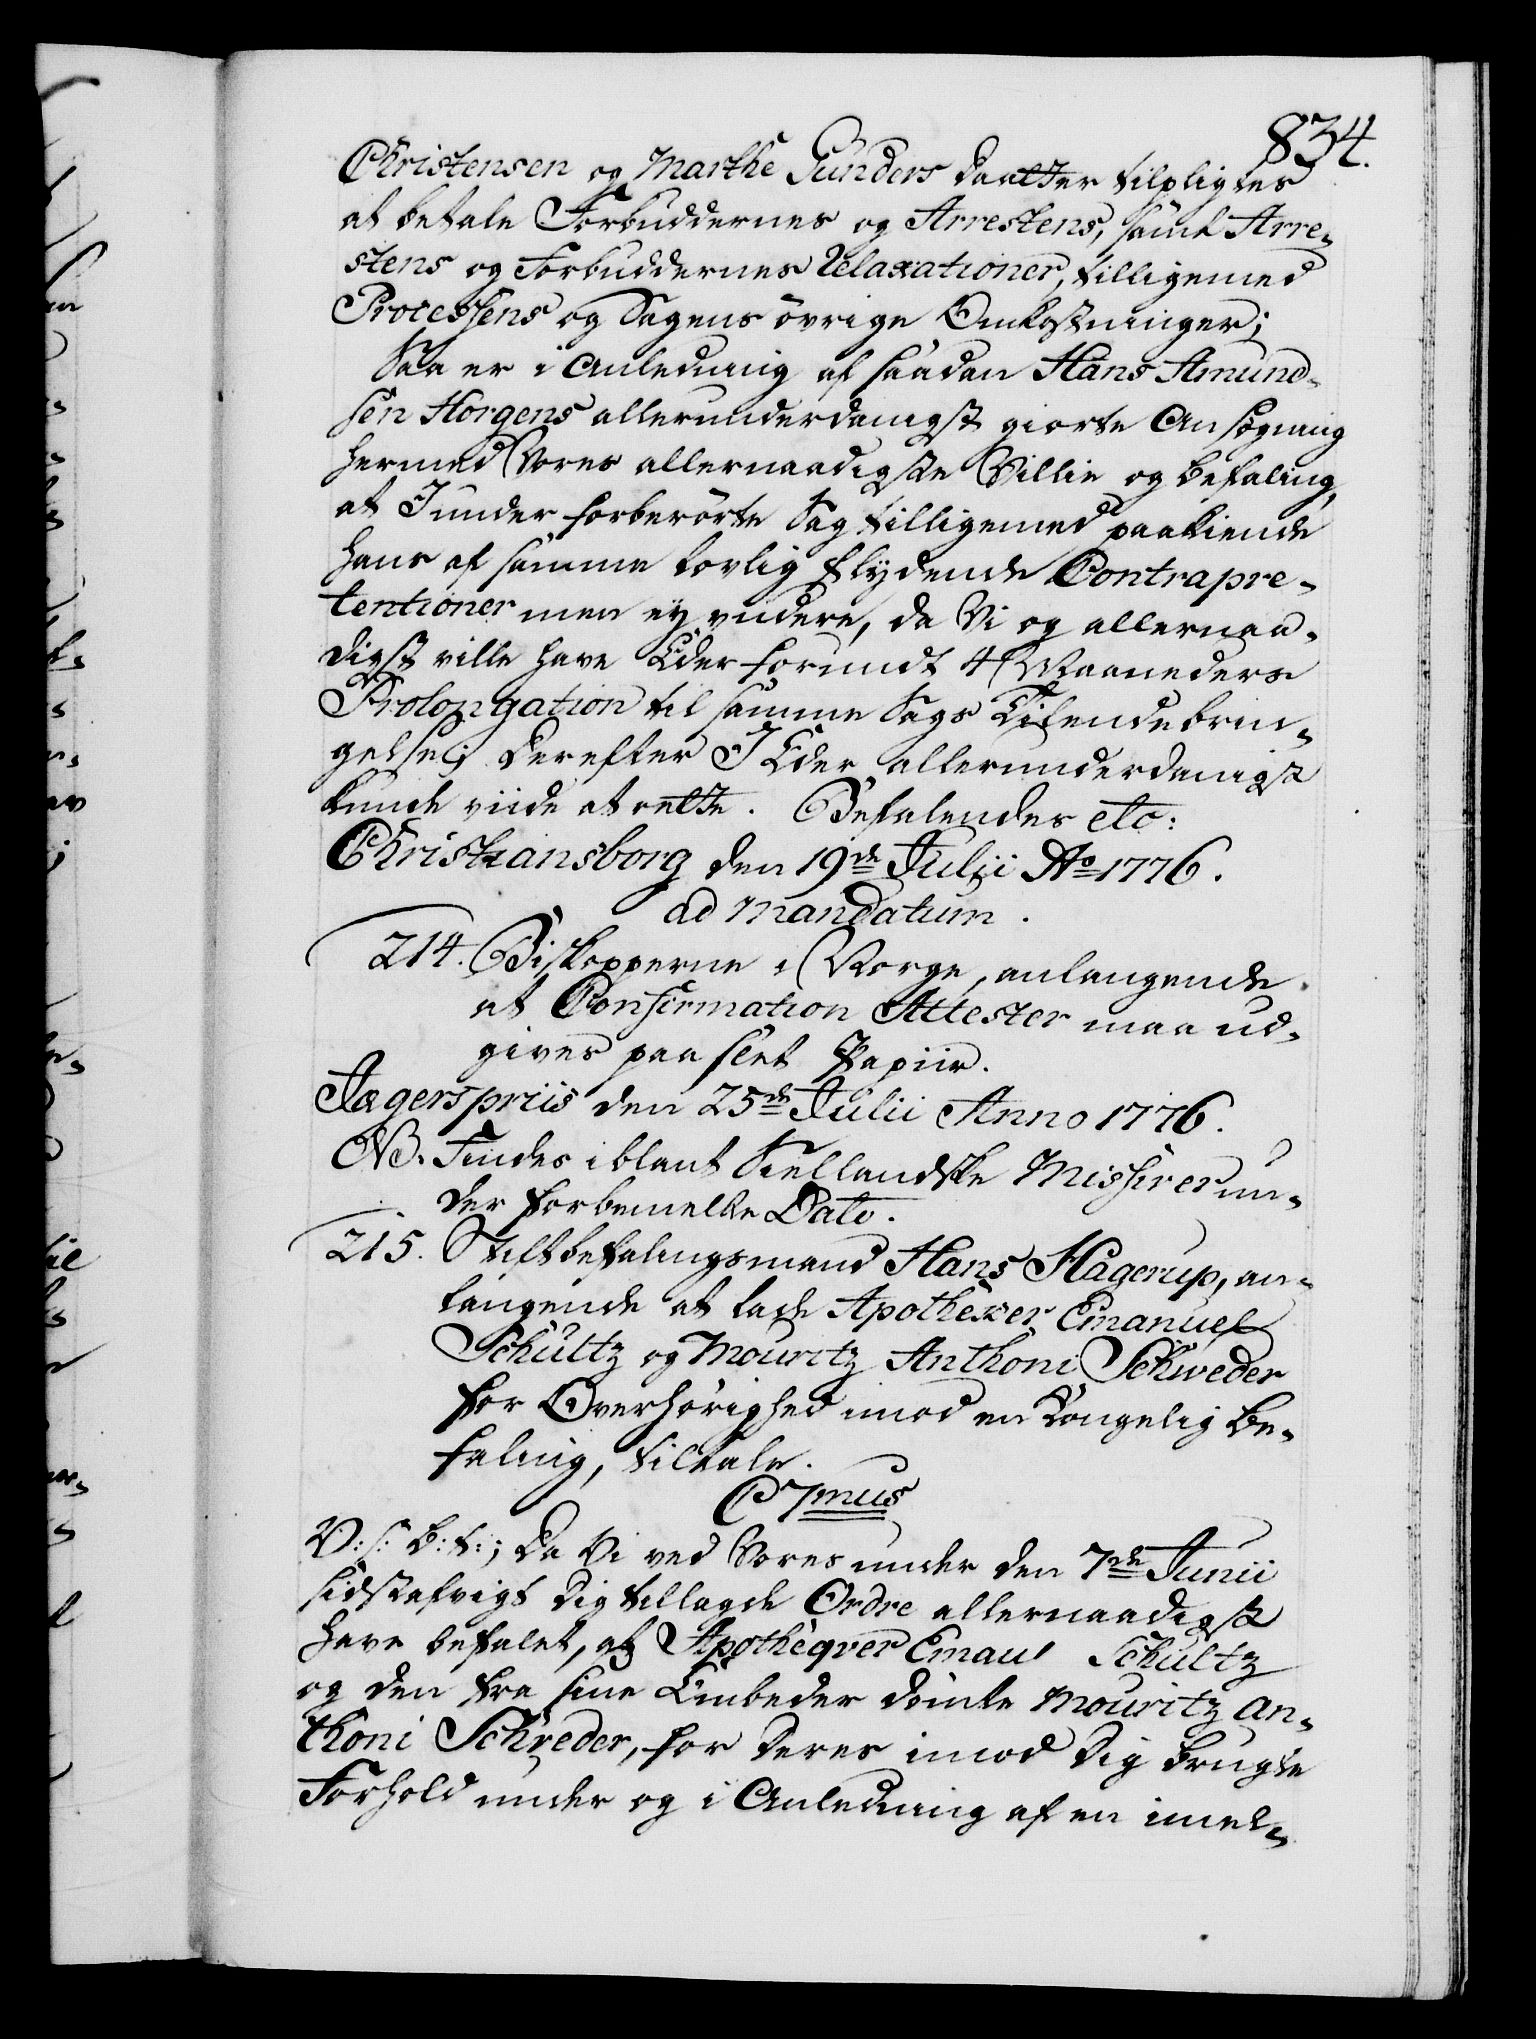 834.
Christensen og Marthe Gunders Daatter tilpligtes
at betale Forbuddernes og Arrestens, samt Arre-
stens og Forbuddernes Relaxationer, tilligemed
Processens og Sagens övrige Omkostninger;
Saa er i Anledning af saadan Hans Amund-
sen Horgens allerunderdanigst giorte Ansøgning
hermed Vores allernaadigste Villie og befaling,
at I under forberörte Sag tilligemed paakiende
hans af samme lovlig flÿdende Contrapre-
tentioner men eÿ videre, da Vi og allernaa-
digst ville have Eder forundt 4 Maaneders
Prolongation til samme Sags Tilendebrin-
gelse; Derefter I Eder allerunderdanigst
kunde viide at rette. Befalendes etc:
Christiansborg den 19de Julii Ao 1776.
ad mandatum.
214. Biskopperne i Norge, anlangende
at Confirmation Attester maa ud-
gives paa slet Papiir.
Jægerspriis den 25de Julii Anno 1776.
NB. Findes iblant Siellandske Missiver un-
der forbemelte Dato.
215. Stiftbefalingsmand Hans Hagerup, an-
langende at lade Apotheker Emanuel
Schultz og Mouritz Anthoni Schweder
for Overhörighed imod en Kongelig Be-
faling, tiltale.
C 7mus
V: s: b: t:; Da Vi ved Vores under den 7de Junii
sidstafvigt dig tillagde Ordre allernaadigst
have befalet, at Apotheqver Emanl Schultz
og den fra sine Embeder dömte Mouritz An-
thoni Schveder, for deres imod dig brugte
Forhold under og i Anledning af en imel-